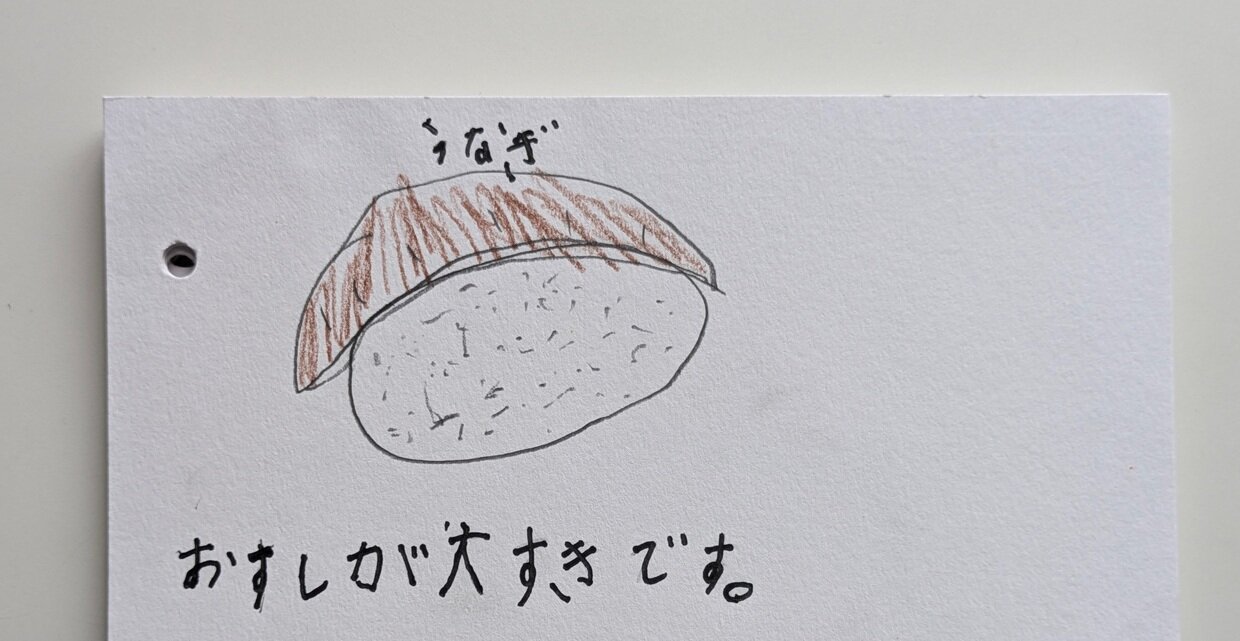 うなぎ
おすしが大すきです。